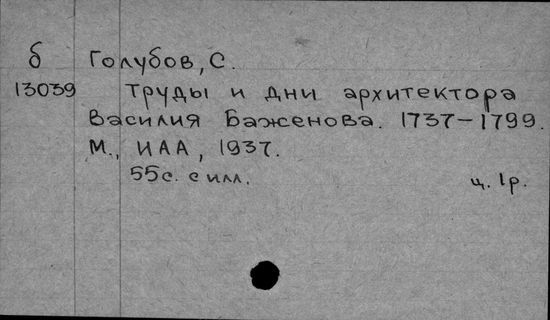 б Голубов, С.
13039 Труды и дни архитектора
Василия Баженова. 1737-1799.
М., ИАА, 1937.
55с. с илл. ц. 1р.